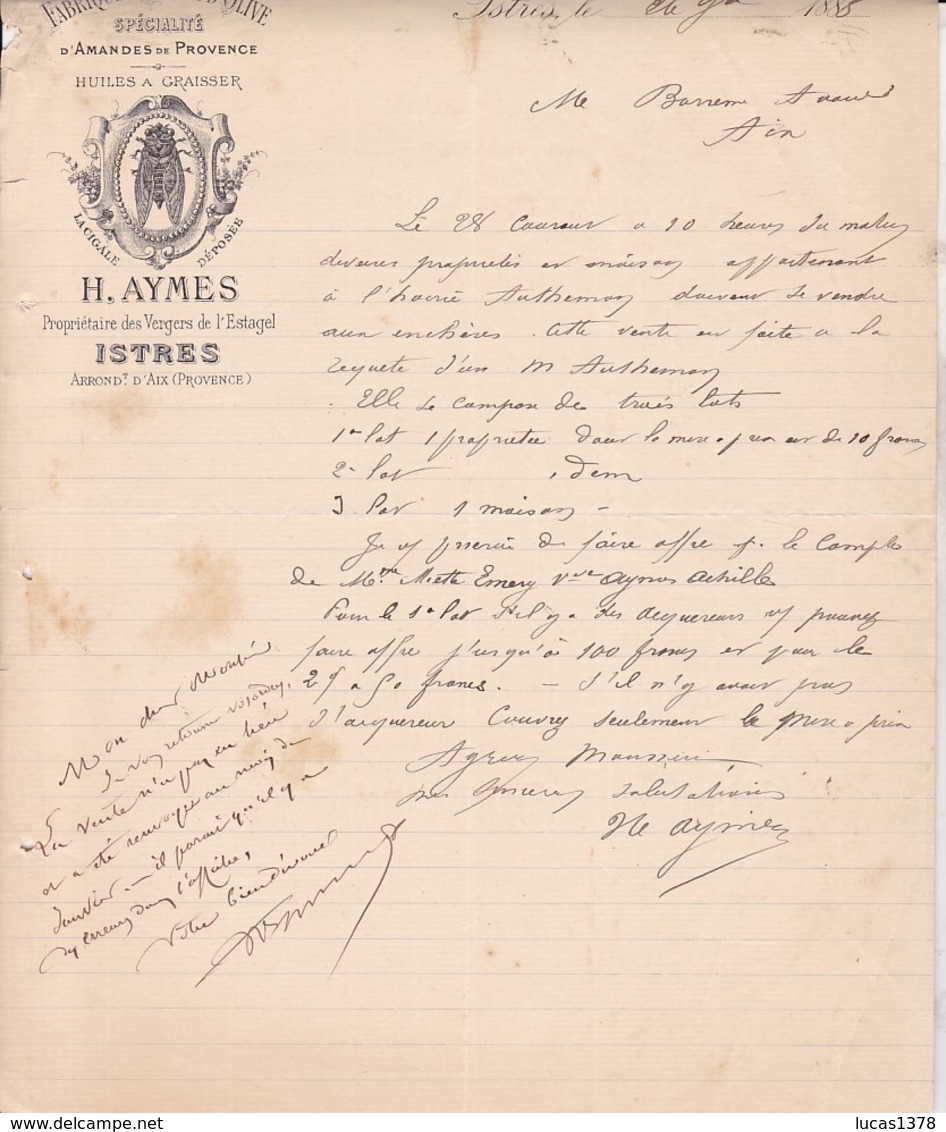 SPÉCIALITÉ
D'AMANDES DE PROVENCE
HUILES A GRAISSER
LA CIGALE DÉPOSÉE
H. AYMES
Propriétaire des Vergers de l'Estagel
ISTRES
ARROND.T D'AIX (PROVENCE)
Istres, le 26 1885
Me Barreme Avoué
Aix
Le 28 Courant a 10 heures du matin
diverses proprietés et maison appartenant
à l'hoirie Autheman doivent se vendre
aux enchères. Cette vente est faite a la
requete d'un M Autheman
Elle se compose de trois lots
1er lot 1 proprietée dont la mise a prix est de 10 francs
2e lot idem
3 lot 1 maison -
Je vs prierai de faire offre p. le compte
de Mme Miette Emery Vve Aymes Achille
Pour le 1er lot s'il y a des acquereurs vs pouvez
faire offre jusqu'à 100 francs et pour le
2e a 50 francs. - S'il n'y avait pas
d'acquereur Couvrez seulement la mise a prix
Agreez Monsieur
mes sinceres salutations
He Aymes
Mon cher
Je vous retourne
La vente n'a pas eu lieu
et a été renvoyée au mois de
Janvier - il parait qu'il y a
erreur dans l'affiche,
Votre bien dévoué
lucas1378